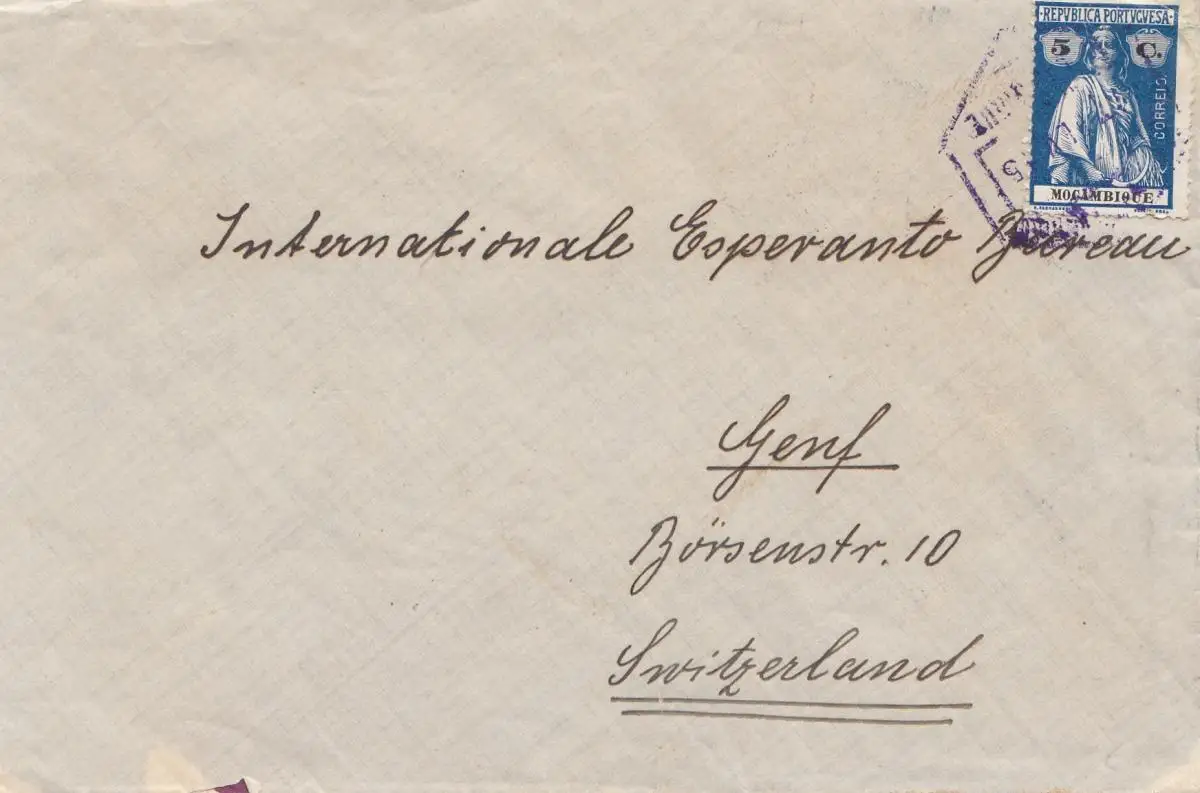 REPVBLICA PORTVGVESA
5 C.
CORREIO
MOÇAMBIQUE
Internationale Esperanto Bureau
Genf
Börsenstr. 10
Switzerland